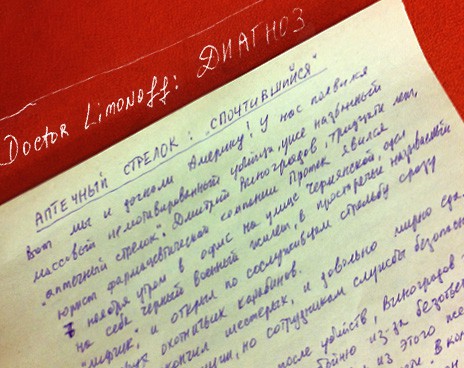 Doctor Limonoff: Диагноз
АПТЕЧНЫЙ СТРЕЛОК: „СПОЧТИВШИЙСЯ"
Вот мы и догнали Америку! У нас появился
массовый немотивированный убийца, уже названный
"аптечный стрелок". Дмитрий Виноградов, тридцати лет,
юрист фармацевтической компании Протек явился
7 ноября утром в офис на улице Чермянской, одел
на себя черный военный жилет, в просторечье называемый
"лифчик", и открыл по сослуживцам стрельбу сразу
двух охотничьих карабинов.
шестерых, и довольно мирно сда
но сотрудникам службы безопасно
после убийств, Виноградов
бойню из-за безответ
из этого
в